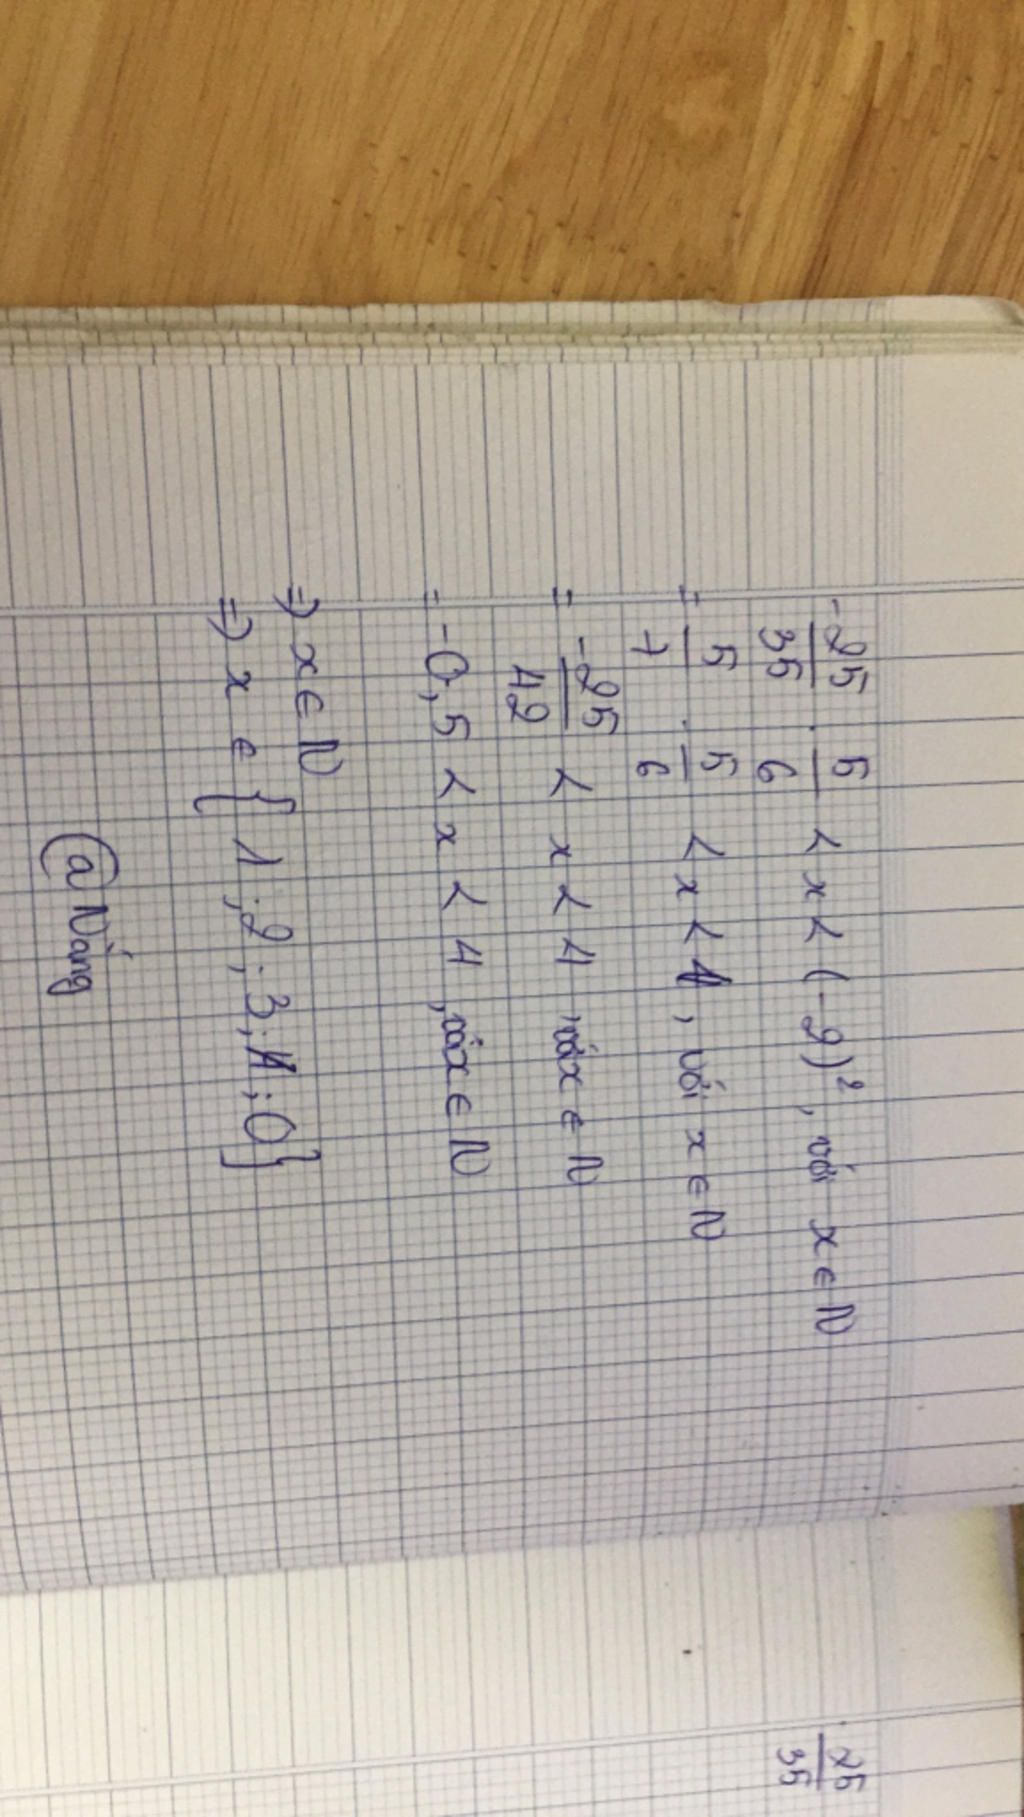 -25/35 . 5/6 < x < (-2)², với x ∈ N
= 5/7 . 5/6 < x < 4, với x ∈ N
= -25/42 < x < 4, với x ∈ N
= -0,5 < x < 4, với x ∈ N
=> x ∈ N
=> x ∈ {1; 2; 3; 4; 0}
@ Nắng
25/35